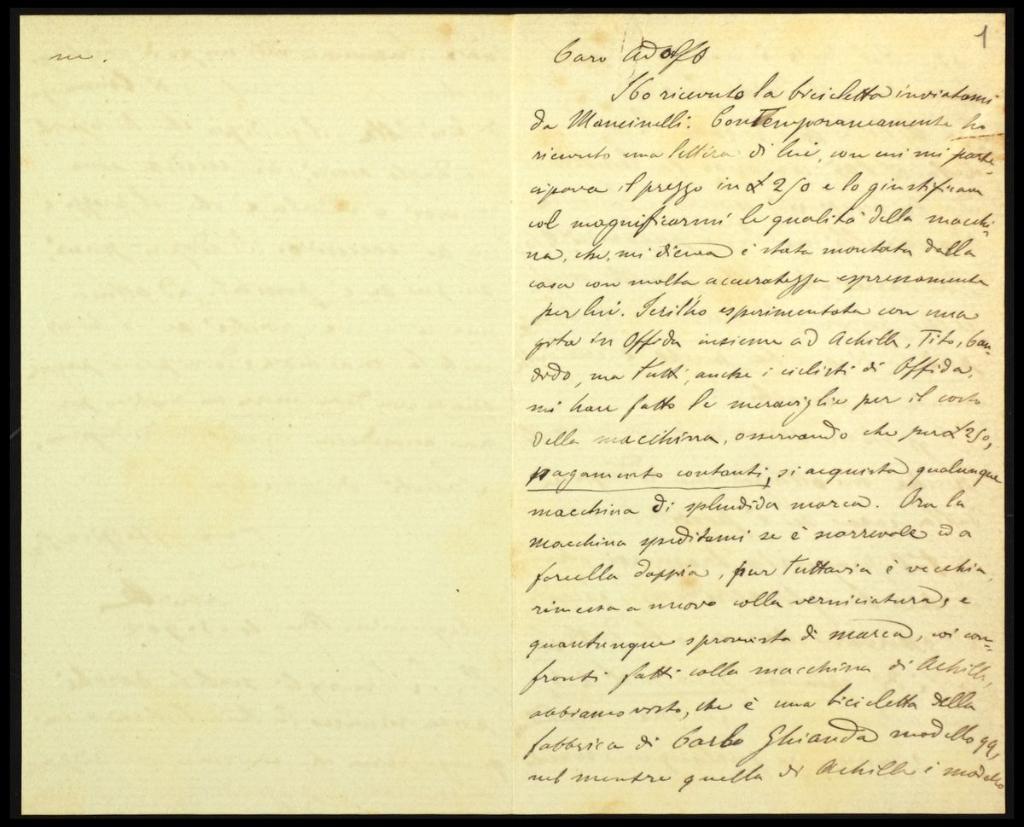 1
Caro Adolfo
Ho ricevuto la bicicletta inviatami
da Mancinelli. Contemporaneamente ho
ricevuto una lettera di lui, con cui mi parte-
cipava il prezzo in £ 250 e lo giustificava
col magnificarmi le qualità della macchi-
na, che, mi diceva è stata montata dalla
casa con molta accuratezza espressamente
per lui. Ieri l'ho esperimentata con una
gita in Offida insieme ad Achille, Tito, Can-
dido, ma tutti, anche i ciclisti di Offida,
mi hanno fatto le meraviglie per il costo
della macchina, osservando che per £ 250,
pagamento contanti, si acquista qualunque
macchina di splendida marca. Ora la
macchina speditami se è scorrevole ed a
forcella doppia, pur tuttavia è vecchia,
rimessa a nuovo colla verniciatura, e
quantunque sprovvista di marca, coi con-
fronti fatti colla macchina di Achille,
abbiamo visto, che è una bicicletta della
fabbrica di Carlo Ghianda modello 99,
nel mentre quella di Achille è modello